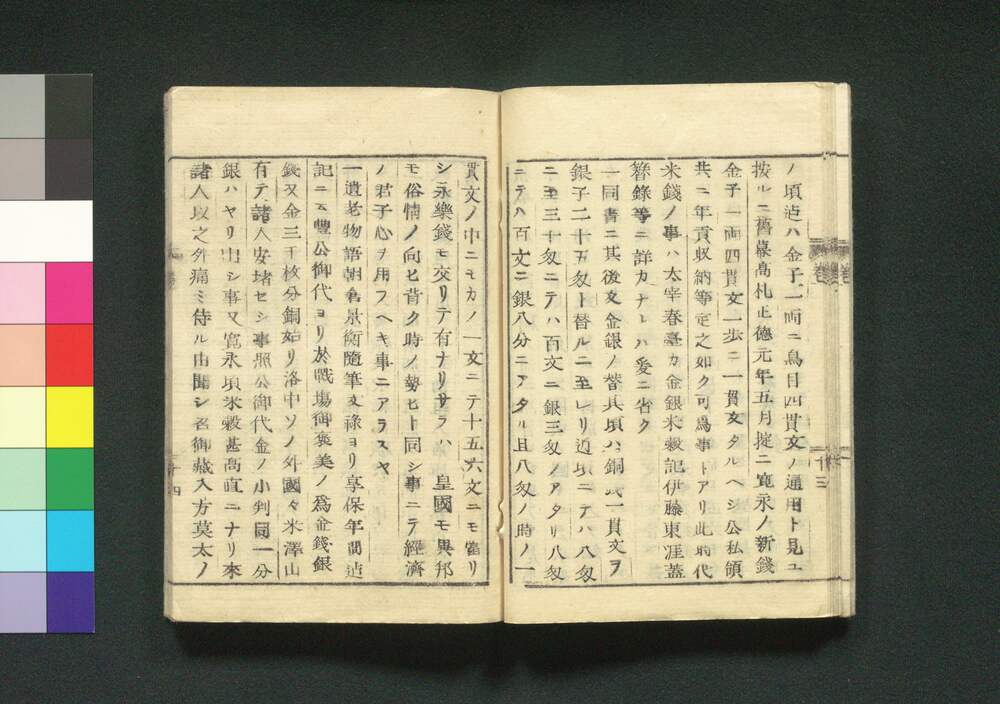 ノ頃迠ハ金子一両ニ鳥目四貫文ノ通用ト見ユ
按ルニ舊幕高札正德元年五月掟ニ寛永ノ新錢
金子一両四貫文一歩ニ一貫文タルヘシ公私領
共ニ年貢収納等定之如ク可為事トアリ此時代
米錢ノ事ハ太宰春臺カ金銀米穀記伊藤東涯蓋
簪錄等ニ詳カナレハ爰ニ省ク
一同書ニ其後文金銀ノ替其頃ハ銅一貫文ヲ
銀子二十五匁ト替ルニ至レリ迠頃ニテハ八匁
ニ至三十匁ニテハ百文ニ銀三匁ノアタリ八匁
ニテハ百文ニ銀八分ニアタル且八匁ノ時ノ一
貫文ノ中ニモカノ一文ニテ十五六文ニモ當リ
シ永樂錢モ交リテ有ナリサラハ皇國モ異邦
モ俗情ノ向ヒ背ク時ノ勢ヒト同シ事ニテ經濟
ノ君子心ヲ用フヘキ事ニアラスヤ
一遺老物語朝倉景衡隨筆文祿ヨリ享保年間迠
記ニ云豐公御代ヨリ於戰塲御褒美ノ為金錢銀
錢又金三千枚分銅始リ洛中ソノ外國々米澤山
有テ諸人安堵セシ事照公御代金ノ小判同一分
銀ハヤリ出シ事又寛永頃米穀甚高直ニナリ來
諸人以之外痛ミ侍ル由聞シ召御藏入方莫太ノ